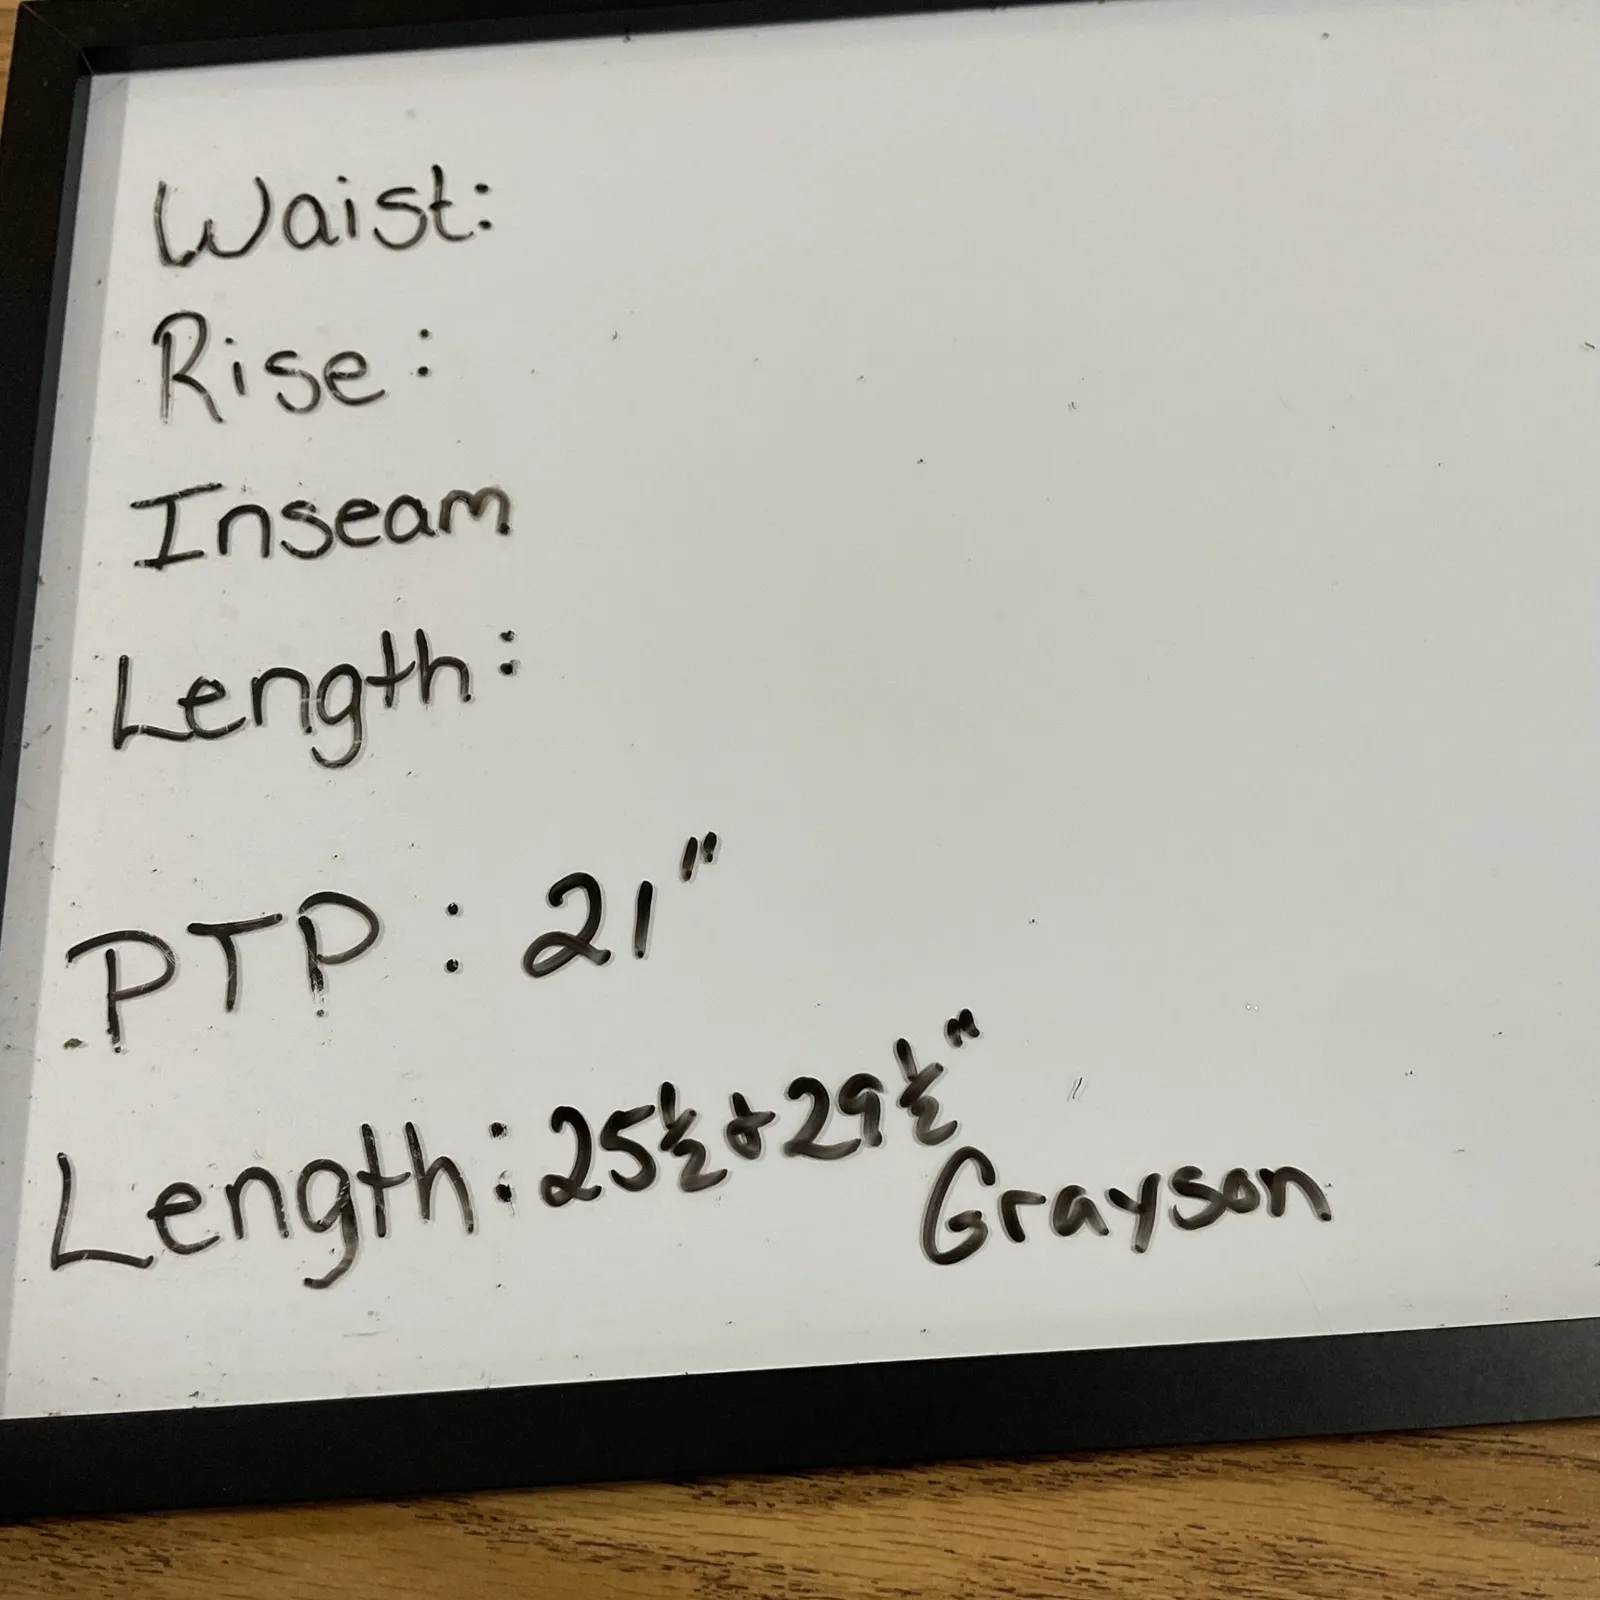 Waist:
Rise:
Inseam
Length:
PTP: 21"
Length: 25½ + 29½"
Grayson